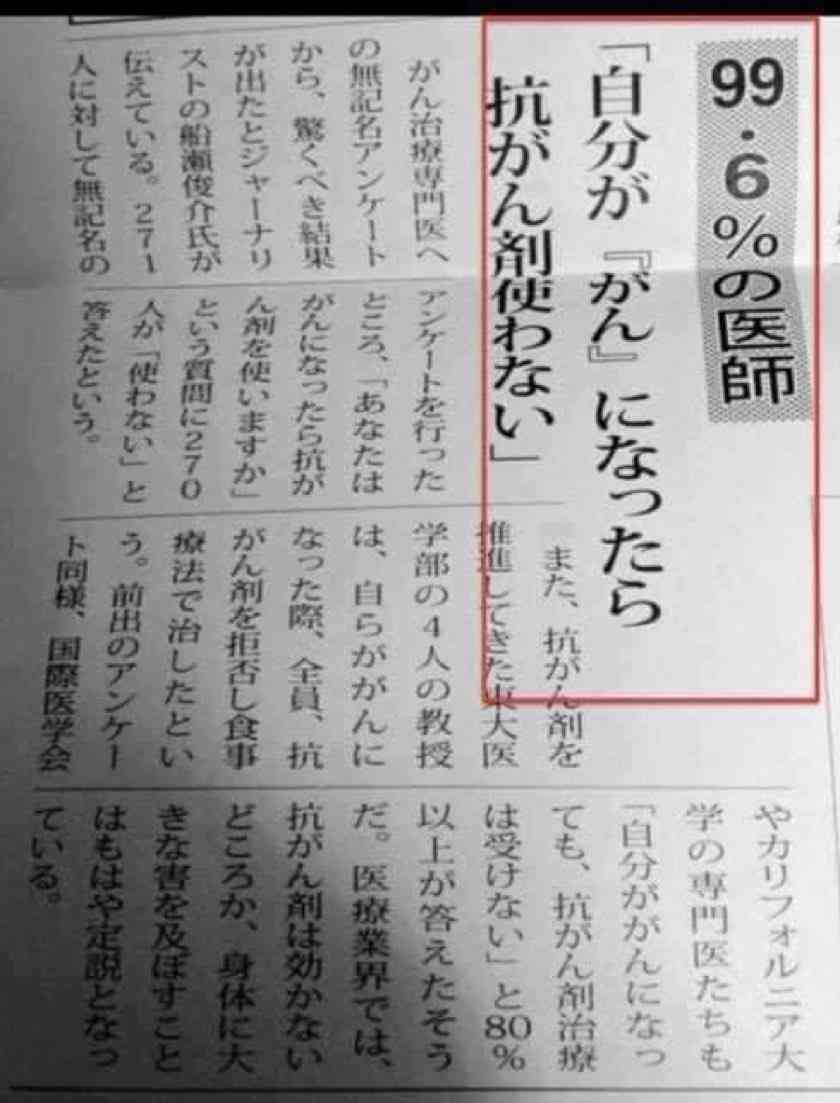 99・6%の医師
「自分が『がん』になったら
抗がん剤使わない」
がん治療専門医へ
の無記名アンケート
から、驚くべき結果
が出たとジャーナリ
ストの船瀬俊介氏が
伝えている。271
人に対して無記名の
アンケートを行った
ところ、「あなたは
がんになったら抗が
ん剤を使いますか」
という質問に270
人が「使わない」と
答えたという。
また、抗がん剤を
推進してきた東大医
学部の4人の教授
は、自らががんに
なった際、全員、抗
がん剤を拒否し食事
療法で治したとい
う。前出のアンケー
ト同様、国際医学会
やカリフォルニア大
学の専門医たちも
「自分ががんになっ
ても、抗がん剤治療
は受けない」と80%
以上が答えたそう
だ。医療業界では、
抗がん剤は効かない
どころか、身体に大
きな害を及ぼすこと
はもはや定説となっ
ている。